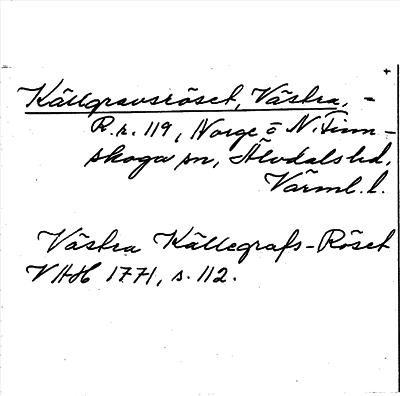 Källgravsröset, Västra, -
R.r. 119, Norge o N. Finn-
skoga sn, Älvdals hd,
Värml. l.
Västra Källegrafs-Röset
VHH 1771, s. 112.